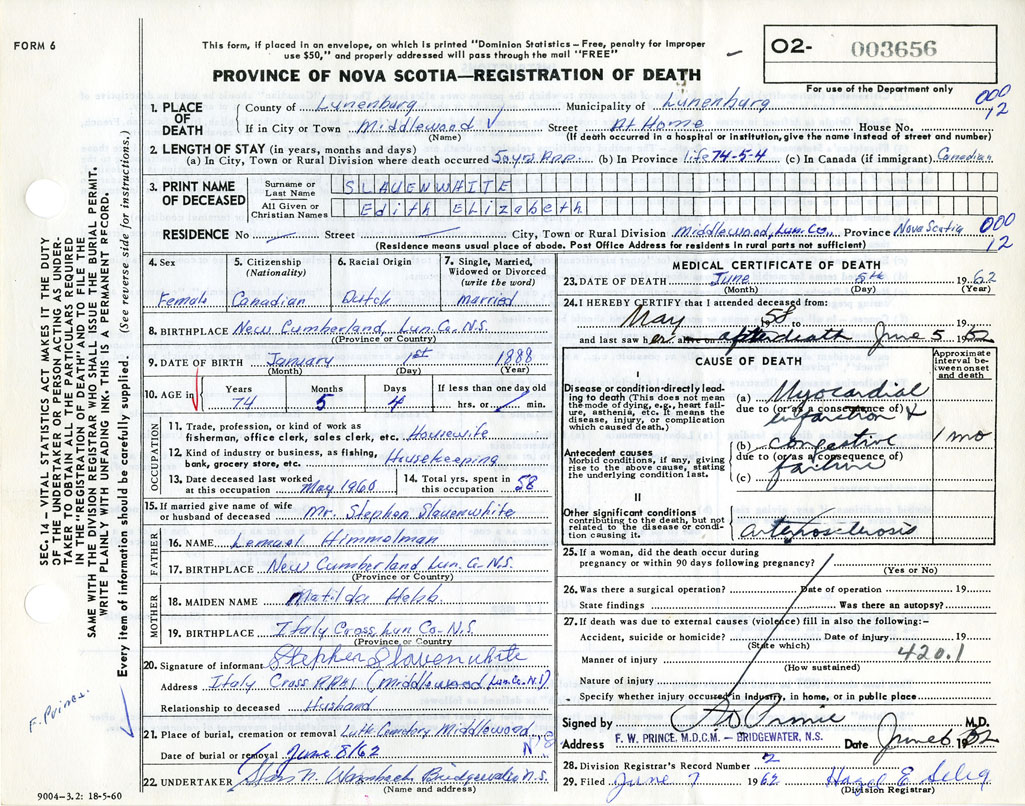 FORM 6
This form, if placed in an envelope, on which is printed "Dominion Statistics – Free, penalty for improper
use $50," and properly addressed will pass through the mail "FREE"
O2- 003656
PROVINCE OF NOVA SCOTIA—REGISTRATION OF DEATH
For use of the Department only
000
12
1. PLACE OF DEATH
County of Lunenburg Municipality of Lunenburg
If in City or Town Middlewood Street At Home House No.
(Name) (If death occurred in a hospital or institution, give the name instead of street and number)
2. LENGTH OF STAY (in years, months and days)
(a) In City, Town or Rural Division where death occurred (b) In Province life 74-5-4 (c) In Canada (if immigrant) Canadian
3. PRINT NAME OF DECEASED
Surname or Last Name SLAUENWHITE
All Given or Christian Names Edith ELizabeth
RESIDENCE No Street City, Town or Rural Division Middlewood, Lun. Co., Province Nova Scotia
000
12
(Residence means usual place of abode. Post Office Address for residents in rural parts not sufficient)
4. Sex Female
5. Citizenship (Nationality) Canadian
6. Racial Origin Dutch
7. Single, Married, Widowed or Divorced (write the word) married
8. BIRTHPLACE New Cumberland, Lun. Co. N.S.
(Province or Country)
9. DATE OF BIRTH January 1st 1888
(Month) (Day) (Year)
10. AGE in Years 74 Months 5 Days 4 If less than one day old hrs. or min.
OCCUPATION
11. Trade, profession, or kind of work as fisherman, office clerk, sales clerk, etc. Housewife
12. Kind of industry or business, as fishing, bank, grocery store, etc. Housekeeping
13. Date deceased last worked at this occupation May 1960
14. Total yrs. spent in this occupation 58
15. If married give name of wife or husband of deceased Mr. Stephen Slauenwhite
FATHER
16. NAME Lemuel Himmelman
17. BIRTHPLACE New Cumberland Lun. Co. N.S.
(Province or Country)
MOTHER
18. MAIDEN NAME Matilda Hebb
19. BIRTHPLACE Italy Cross, Lun Co-N.S.
(Province or Country)
20. Signature of informant Stephen Slavenwhite
Address Italy Cross RR#1 (Middlewood Lun. Co. N.S)
Relationship to deceased Husband
21. Place of burial, cremation or removal Luth. Cemetery Middlewood N.S
Date of burial or removal June 8/62
22. UNDERTAKER Bridgewater N.S.
(Name and address)
9004-3.2: 18-5-60
MEDICAL CERTIFICATE OF DEATH
23. DATE OF DEATH June 5th 1962
(Month) (Day) (Year)
24. I HEREBY CERTIFY that I attended deceased from:
May 1958 to 19
and last saw her alive on after death June 5 1962
CAUSE OF DEATH
Approximate interval between onset and death
I
Disease or condition directly leading to death (This does not mean the mode of dying, e.g., heart failure, asthenia, etc. It means the disease, injury, or complication which caused death.)
(a) Myocardial infarction &
due to (or as a consequence of)
Antecedent causes
Morbid conditions, if any, giving rise to the above cause, stating the underlying condition last.
(b) congestive failure 1 mo
due to (or as a consequence of)
(c)
II
Other significant conditions
contributing to the death, but not related to the disease or condition causing it. arteriosclerosis
25. If a woman, did the death occur during
pregnancy or within 90 days following pregnancy?
(Yes or No)
26. Was there a surgical operation? Date of operation 19
State findings Was there an autopsy?
27. If death was due to external causes (violence) fill in also the following:-
Accident, suicide or homicide? Date of injury 19
(State which)
420.1
Manner of injury
(How sustained)
Nature of injury
Specify whether injury occurred in industry, in home, or in public place
Signed by M.D.
Address F. W. PRINCE, M.D.C.M. – BRIDGEWATER, N.S. Date June 6 1962
28. Division Registrar's Record Number 2
29. Filed June 7 1962 Hazel E. Selig
(Division Registrar)
SEC. 14 – VITAL STATISTICS ACT MAKES IT THE DUTY
OF THE UNDERTAKER OR PERSON ACTING AS UNDER-
TAKER TO OBTAIN ALL THE PARTICULARS REQUIRED
IN THE "REGISTRATION OF DEATH" AND TO FILE THE
SAME WITH THE DIVISION REGISTRAR WHO SHALL ISSUE THE BURIAL PERMIT.
WRITE PLAINLY WITH UNFADING INK. THIS IS A PERMANENT RECORD.
Every item of information should be carefully supplied. (See reverse side for instructions.)